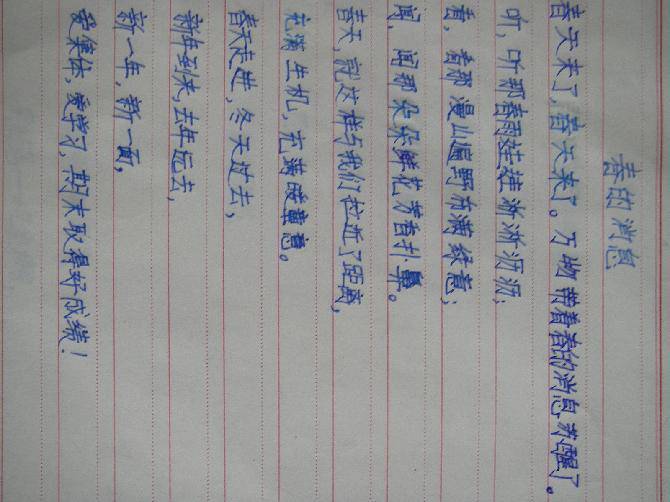 春的消息
春天来了,春天来了。万物带着春的消息苏醒了。
听,听那春雨娃娃淅淅沥沥;
看,看那漫山遍野布满绿意;
闻,闻那朵朵鲜花芳香扑鼻。
春天,就这样与我们拉近了距离,
充满生机,充满暖意。
春天走进,冬天过去,
新年到来,去年远去,
新一年,新一面,
爱集体,爱学习,期末取得好成绩!